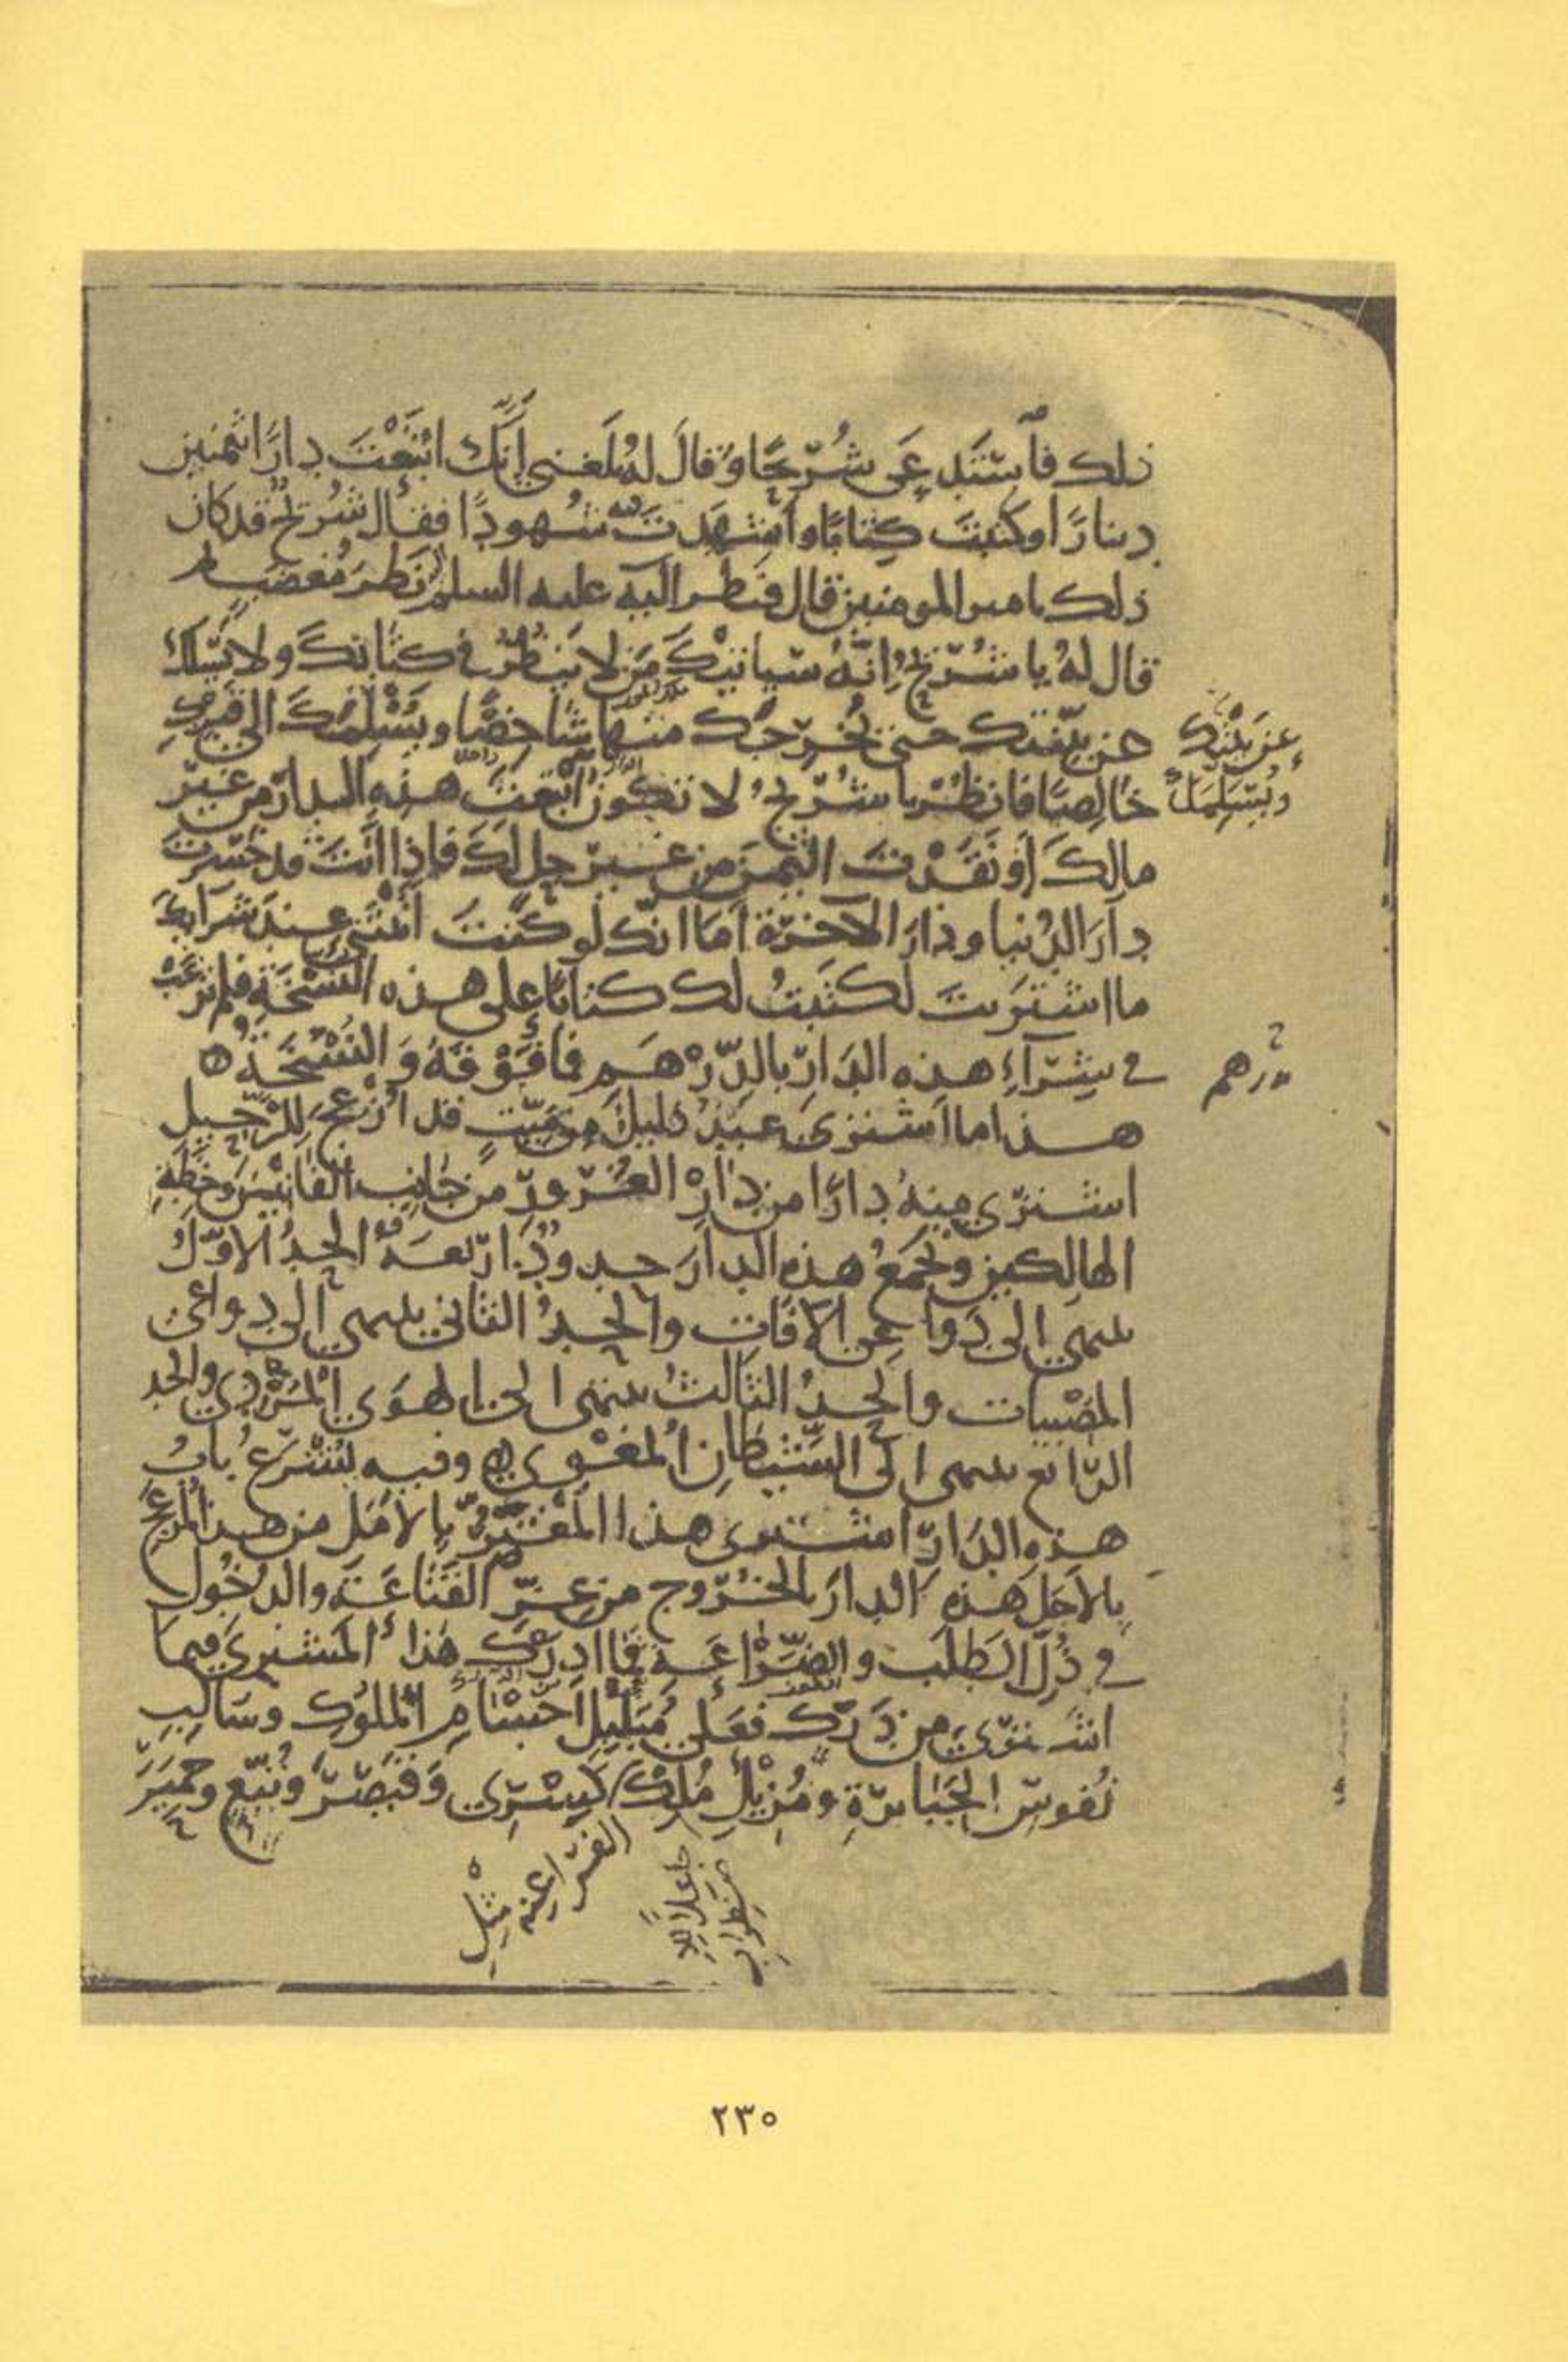 ذلك فاستدعى شريحا وقال له بلغني أنك ابتعت دارا بثمنين
دينارا وكتبت كتابا وأشهدت فيه شهودا فقال شريح قد كان
ذلك يا مير المومنين قال فنظر اليه عليه السلم نظر مغضب ثم
قال له يا شريح إنه سيأتيك من لا ينظر في كتابك ولا يسلك
عن بيتك حتى يخرجك منها شاخصا ويسلمك الى قبرك
خالصا فانظر يا شريح لا تكون ابتعت هذه الدار من غير
مالك أو نقدت الثمن من غير حلالك فإذا أنت قد خسرت
دار الدنيا ودار الآخرة أما انك لو كنت أتيتني عند شرايك
ما اشتريت لكتبت لك كتابا على هذه النسخة فلم ترغب
في شرآء هذه الدار بالدرهم فما فوقه والنسخة
هذا ما اشترى عبد ذليل من ميت قد أزعج للرحيل
اشترى منه دارا من دار الغرور من جانب الفانين وخطة
الهالكين وتجمع هذه الدار حدود اربعة الحد الاول
ينتهي الى دواعي الآفات والحد الثاني ينتهي الى دواعي
المصيبات والحد الثالث ينتهى الى الهوى المردي والحد
الرابع ينتهى الى الشيطان المغوي وفيه يشرع باب
هذه الدار اشترى هذا المغتر بالأمل من هذا المزعج
بالاجل هذه الدار بالخروج من عز القناعة والدخول
في ذل الطلب والضراعة فما ادرك هذا المشتري فيما
اشترى من درك فعلى مبلبل أجسام الملوك وسالب
نفوس الجبابرة ومزيل ملك كسرى وقيصر وتبع وحمير
عن بيتك
ويسلمك
بدرهم
الفراعنه مثل
٢٣٥